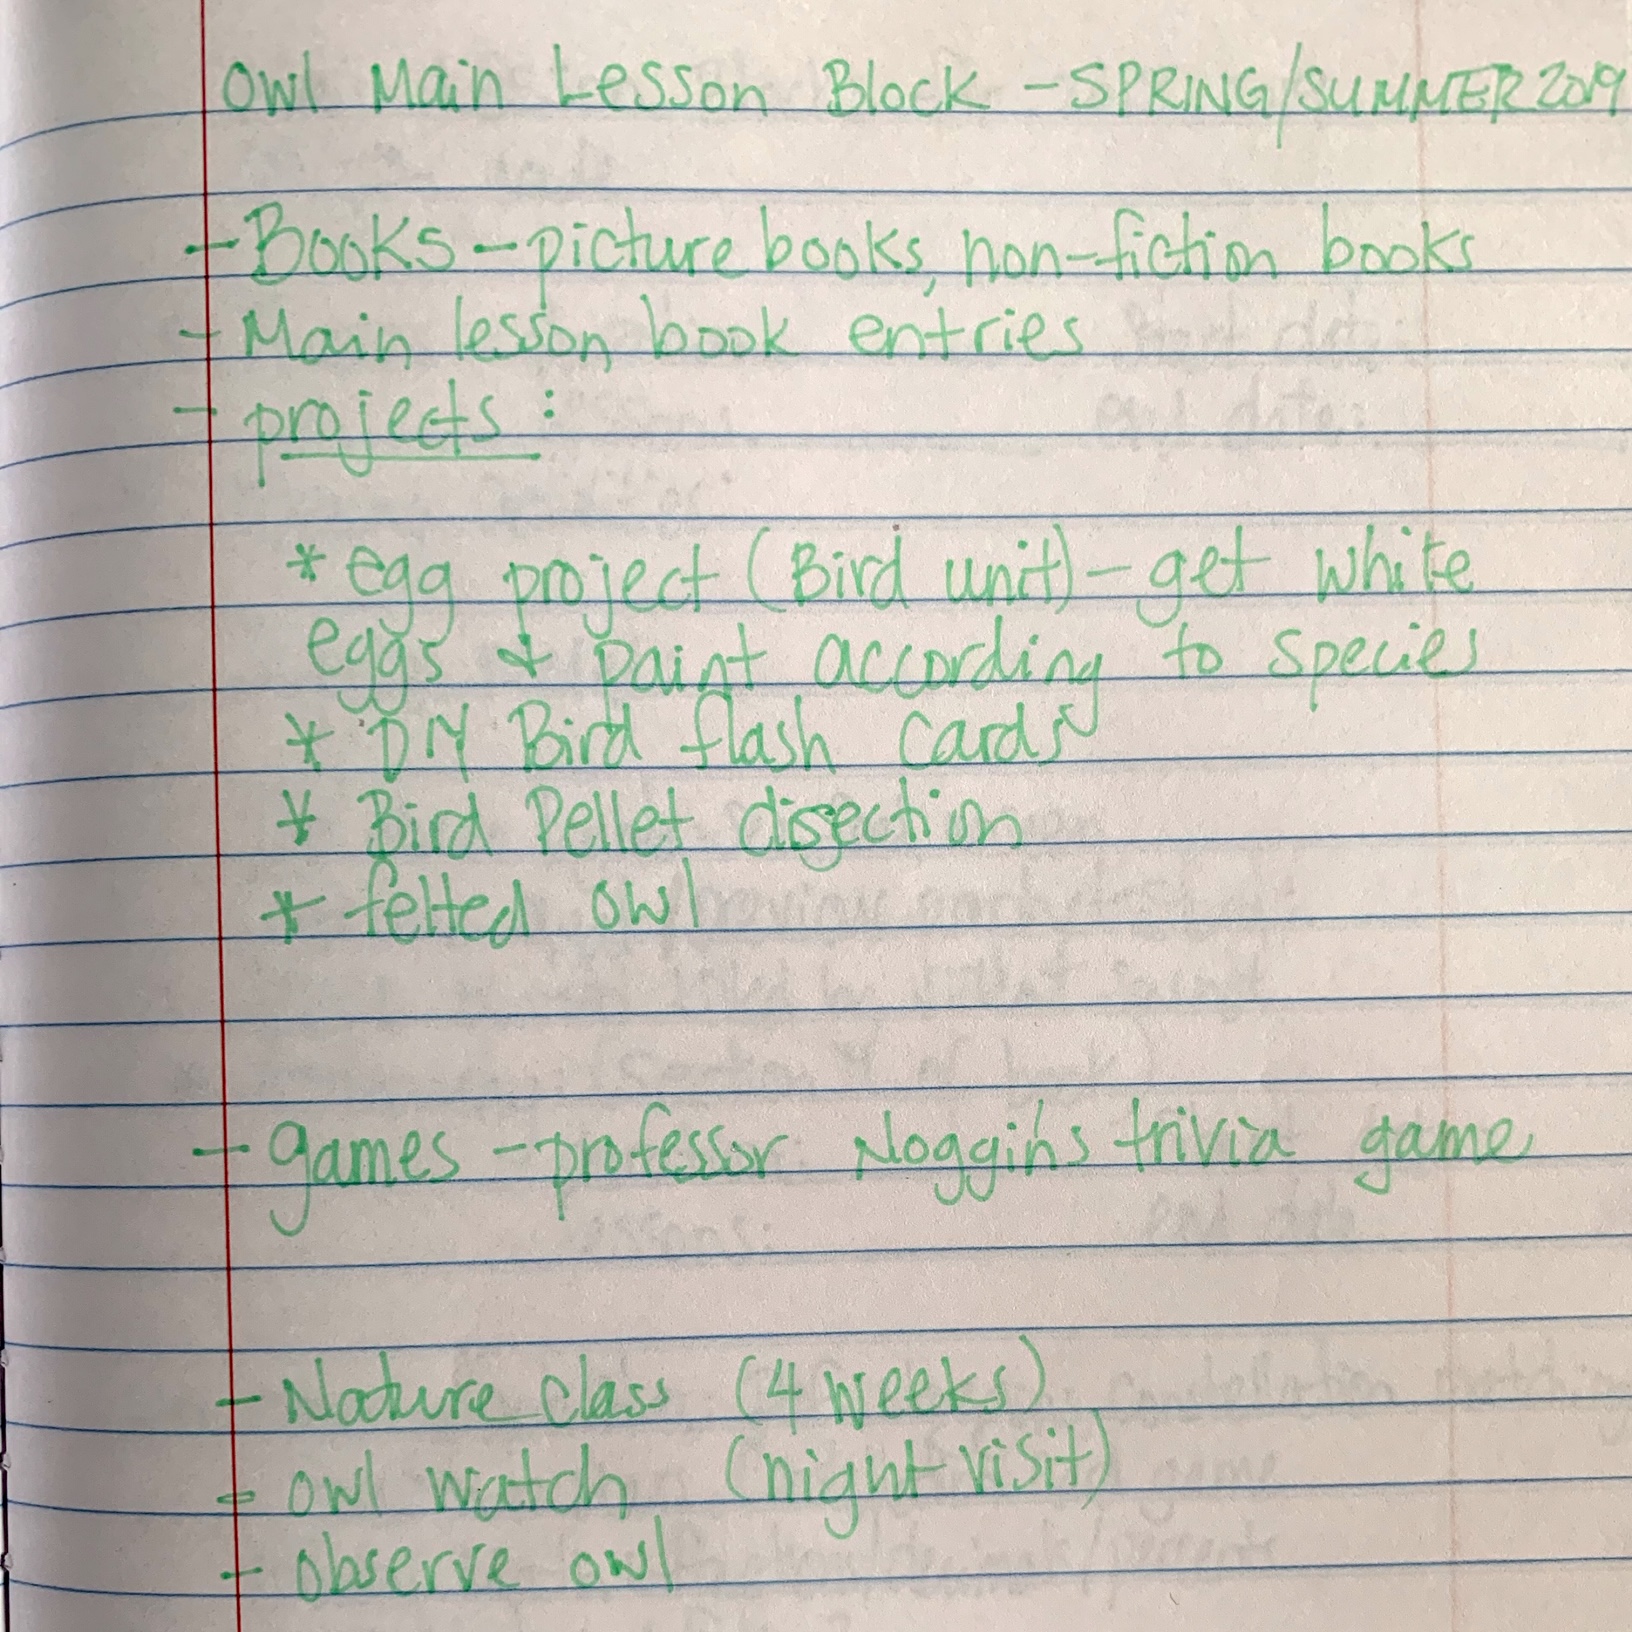 Owl Main Lesson Block - SPRING/SUMMER 2019
- Books - picture books, non-fiction books
- Main lesson book entries
- projects :
* egg project (Bird unit) - get white
eggs & paint according to species
* DIY Bird flash cards
* Bird Pellet disection
* felted owl
- games - professor Noggin's trivia game
- Nature class (4 weeks)
- owl watch (night visit)
- observe owl